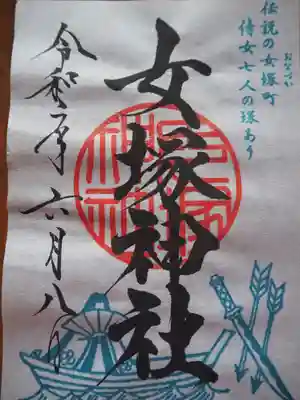 伝説の女塚町
おなづか
侍女七人の塚あり
女塚神社
令和二年六月八日